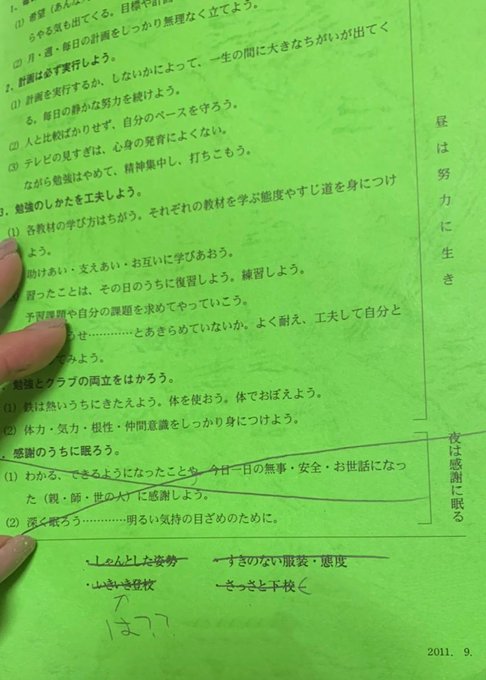 (1) 希望(あんな
らやる気も出てくる。目標や計画
(2) 月・週・毎日の計画をしっかり無理なく立てよう。
2、計画は必ず実行しよう。
(1) 計画を実行するか、しないかによって、一生の間に大きなちがいが出てく
る。毎日の静かな努力を続けよう。
(2) 人と比較ばかりせず、自分のペースを守ろう。
(3) テレビの見すぎは、心身の発育によくない。
ながら勉強はやめて、精神集中し、打ちこもう。
3. 勉強のしかたを工夫しよう。
(1) 各教材の学び方はちがう。それぞれの教材を学ぶ態度やすじ道を身につけ
よう。
助けあい・支えあい・お互いに学びあおう。
習ったことは、その日のうちに復習しよう。練習しよう。
予習課題や自分の課題を求めてやっていこう。
うせ…………とあきらめていないか。よく耐え、工夫して自分と
てみよう。
勉強とクラブの両立をはかろう。
(1) 鉄は熱いうちにきたえよう。体を使おう。体でおぼえよう。
(2) 体力・気力・根性・仲間意識をしっかり身につけよう。
感謝のうちに眠ろう。
(1) わかる、できるようになったことや、今日一日の無事・安全・お世話になっ
た(親・師・世の人)に感謝しよう。
(2) 深く眠ろう…………明るい気持の目ざめのために。
昼は努力に生き
夜は感謝に眠る
・しゃんとした姿勢 ・すきのない服装・態度
・いきいき登校 ・さっさと下校
は??
2011. 9.